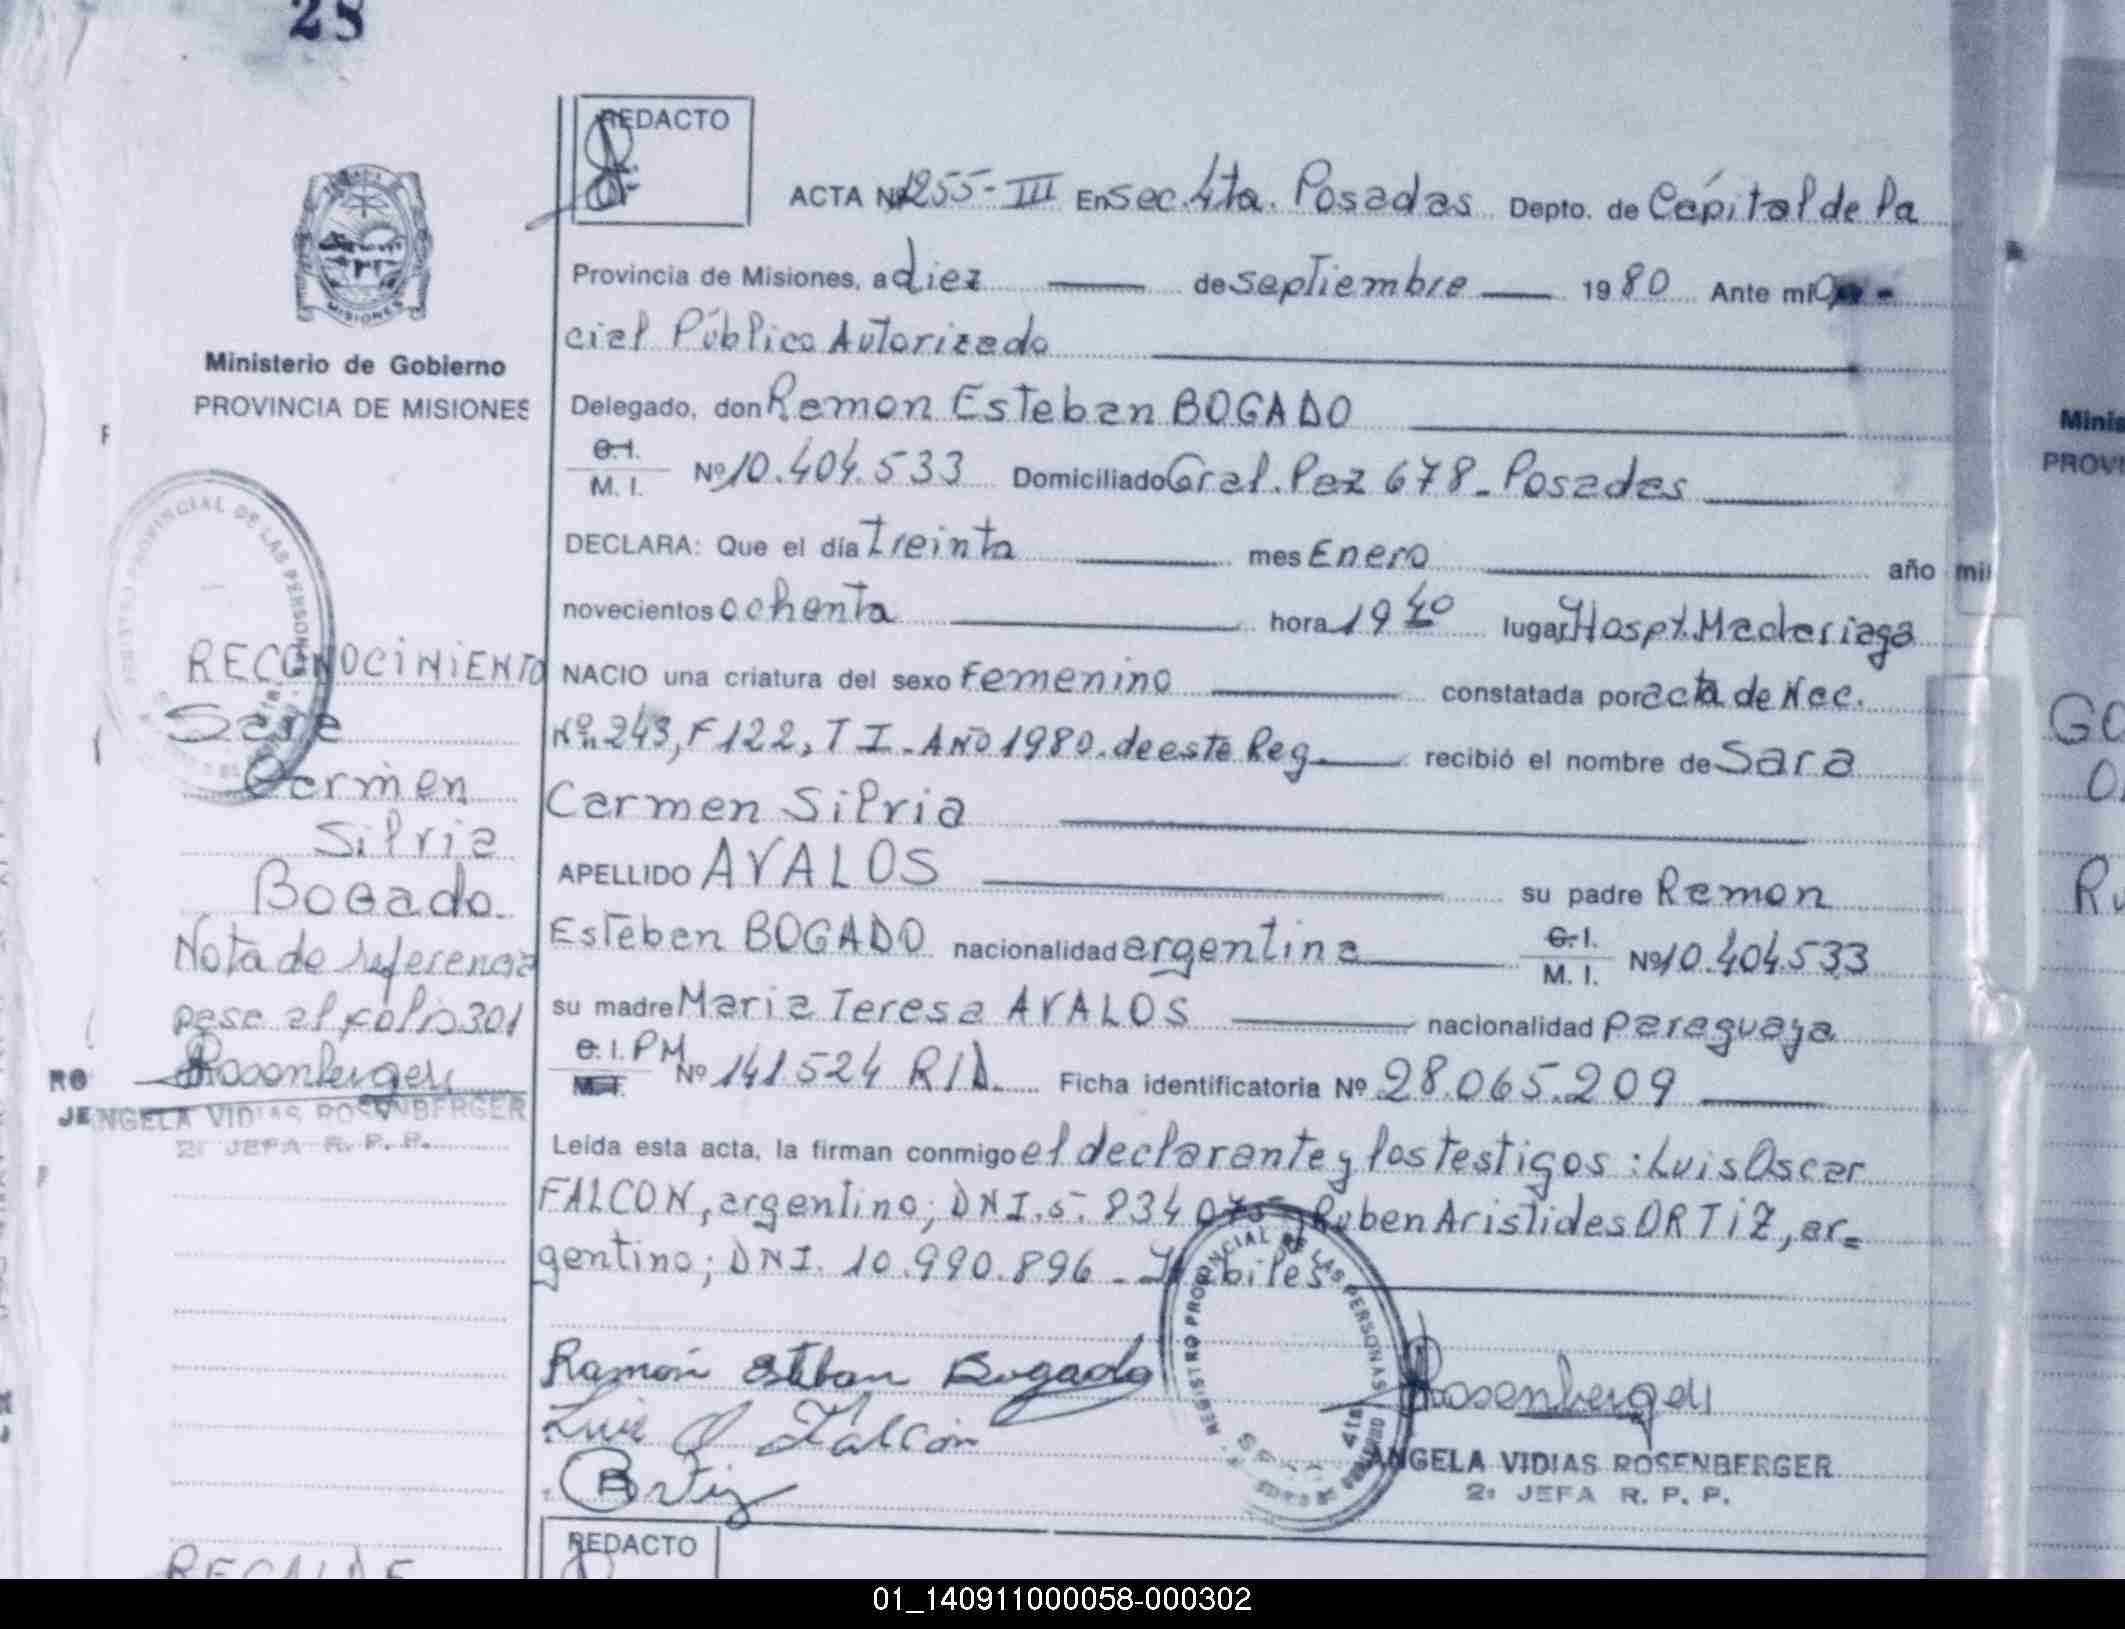 28
REDACTO
ACTA Nº 1255-III En Sec. 4ta. Posadas Depto. de Cápital de la
Provincia de Misiones, a diez de septiembre 1980 Ante mi
cial Público Autorizado
Delegado, don Ramon Esteban BOGADO
C.I.
M. I. Nº 10.404.533 Domiciliado Gral. Paz 678 - Posadas
DECLARA: Que el día treinta mes Enero año mil
novecientos ochenta hora 19 40 lugar Hospt. Madariaga
NACIO una criatura del sexo Femenino constatada por acta de Nac.
Nº 243, F 122, T I - AÑO 1980. de este Reg. recibió el nombre de Sara
Carmen Silvia
APELLIDO AVALOS su padre Ramon
Esteban BOGADO nacionalidad argentina C.I.
M. I. Nº 10.404.533
su madre Maria Teresa AVALOS nacionalidad paraguaya
C. I. PM
M.I. Nº 141524 R/D. Ficha identificatoria Nº 28.065.209
Leída esta acta, la firman conmigo el declarante y los testigos: Luis Oscar
FALCON, argentino; DNI. 5.834.075 Ruben Aristides ORTIZ, ar=
gentino; DNI. 10.990.896 - Habiles
Ramón Esteban Bogado
Luis O Falcón
Ortiz
Rosenberger
ANGELA VIDIAS ROSENBERGER
2ª JEFA R. P. P.
REGISTRO PROVINCIAL DE LAS PERSONAS
MISIONES
Ministerio de Gobierno
PROVINCIA DE MISIONES
REGISTRO PROVINCIAL DE LAS PERSONAS
RECONOCIMIENTO
Sara
Carmen
Silvia
Bogado.
Nota de referencia
pasa al folio 301
Rosenberger
ANGELA VIDIAS ROSENBERGER
2ª JEFA R. P. P.
RO
JE
REDACTO
RECALDE
Minis
PROVI
GO
O
Ru
01_140911000058-000302